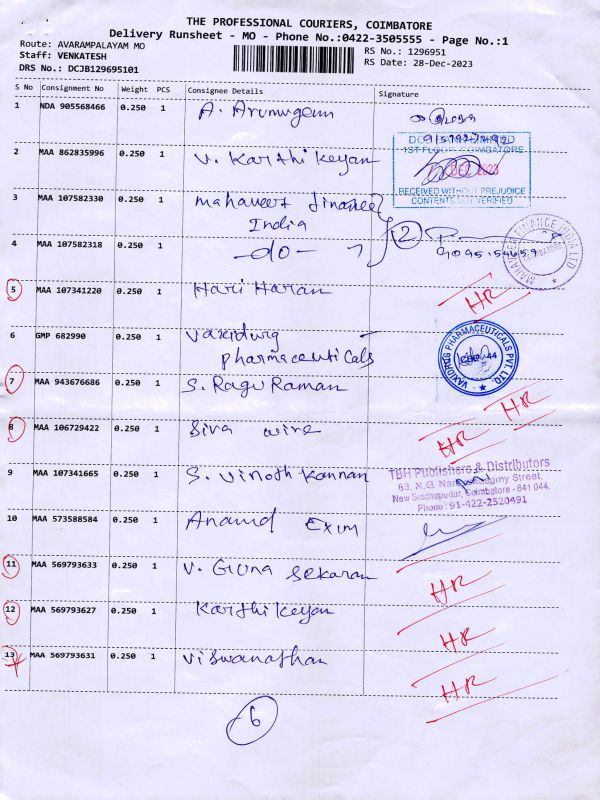 THE PROFESSIONAL COURIERS, COIMBATORE
Delivery Runsheet - MO - Phone No.:0422-3505555 - Page No.:1
Route: AVARAMPALAYAM MO
RS No.: 1296951
Staff: VENKATESH
RS Date: 28-Dec-2023
DRS No.: DCJB129695101
S No Consignment No Weight PCS Consignee Details Signature
1 NDA 905568466 0.250 1 A. Arumugam
2 MAA 862835996 0.250 1 V. Karthikeyan
1ST FLOOR, COIMBATORE
DEC 2023
RECEIVED WITHOUT PREJUDICE
CONTENTS NOT VERIFIED
3 MAA 107582330 0.250 1 Mahaveer Finance
India
2
4 MAA 107582318 0.250 1 -do-
5 MAA 107341220 0.250 1 Hari Haran HR
6 GMP 682990 0.250 1 Vaxidrug
pharmaceuticals
VAXIDRUG PHARMACEUTICALS PVT. LTD.
7 MAA 943676686 0.250 1 S. Ragu Raman HR
8 MAA 106729422 0.250 1 Siva wire HR
9 MAA 107341665 0.250 1 S. Vinoth Kannan
TBH Publishers & Distributors
63, N.G. Street,
New Siddhapudur, Coimbatore - 641 044.
Phone : 91-422-2520491
10 MAA 573588584 0.250 1 Anand Exim
11 MAA 569793633 0.250 1 V. Guna Sekaran HR
12 MAA 569793627 0.250 1 Karthikeyan HR
13 MAA 569793631 0.250 1 Viswanathan HR
6